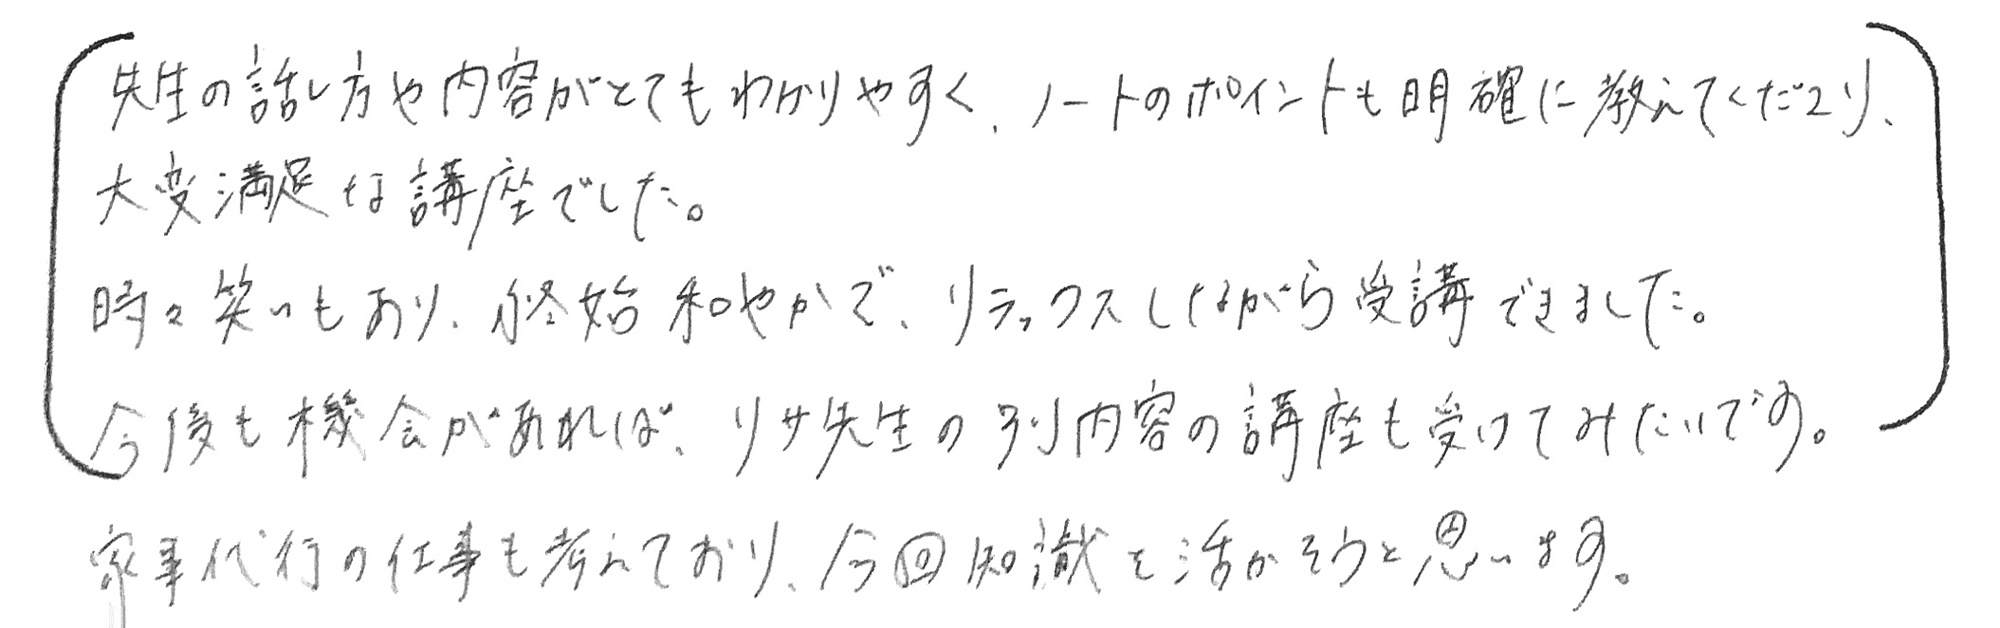 先生の話し方や内容がとてもわかりやすく、ノートのポイントも明確に教えてくださり、
大変満足な講座でした。
時々笑いもあり、終始和やかで、リラックスしながら受講できました。
今後も機会があれば、リサ先生の別内容の講座も受けてみたいです。
家事代行の仕事も考えており、今回知識を活かそうと思います。